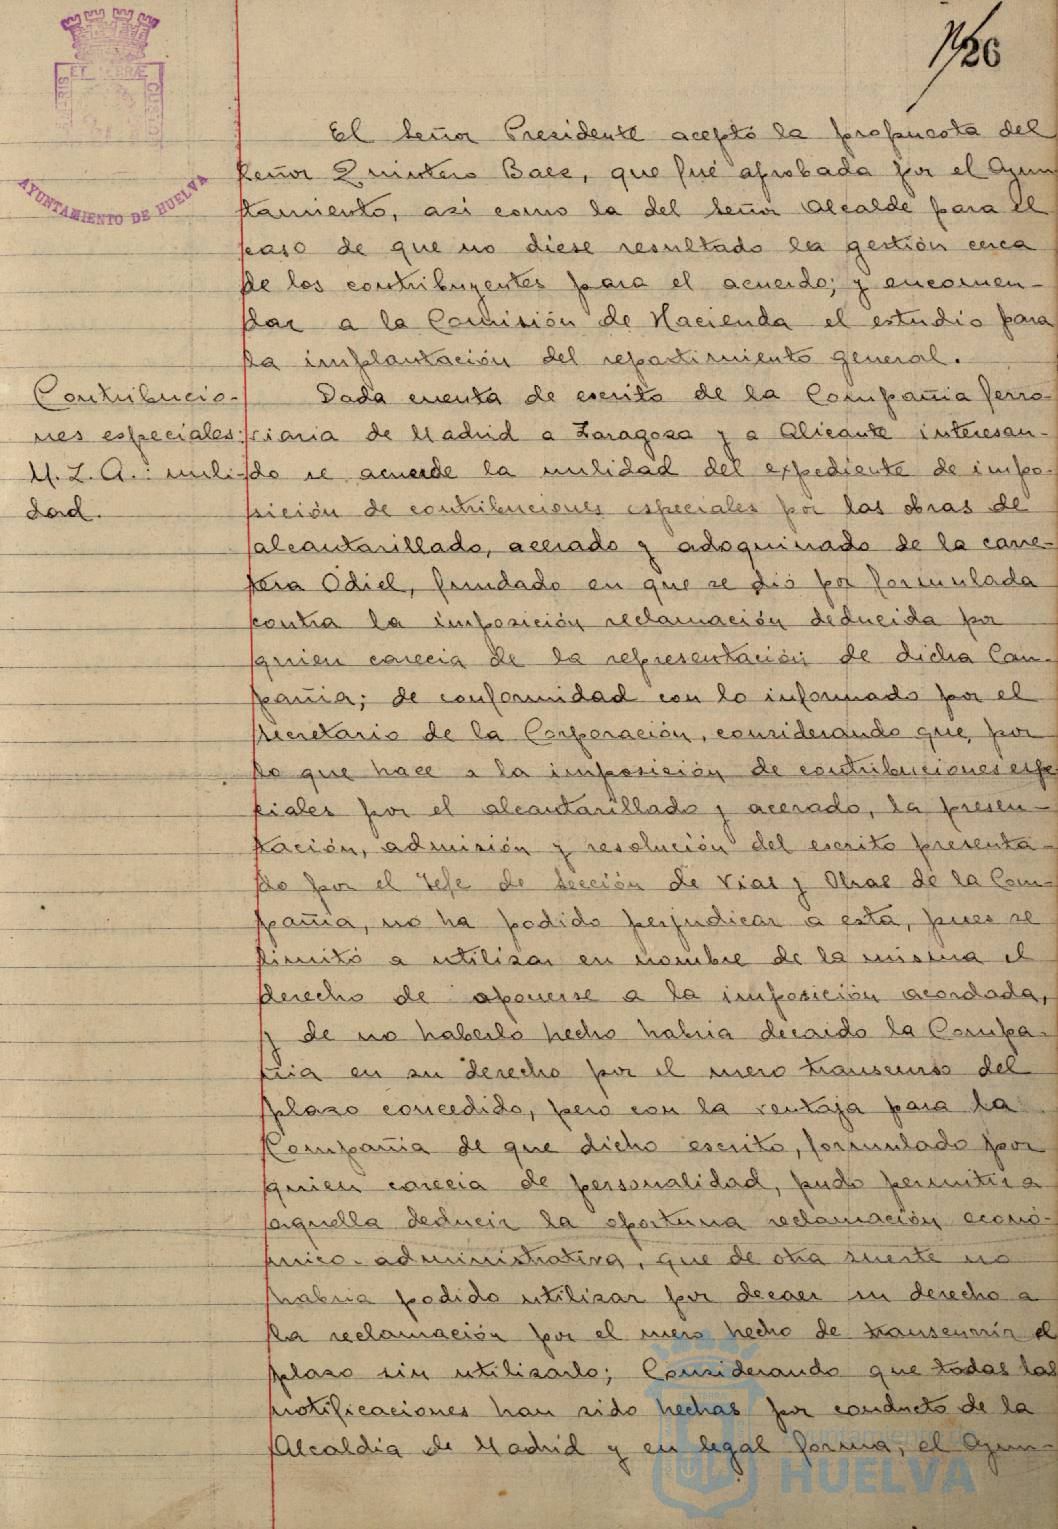 N/26
ET TERRÆ
AYUNTAMIENTO DE HUELVA
El Señor Presidente aceptó la propuesta del
Señor Quintero Baez, que fué aprobada por el Ayun
tamiento, asi como la del Señor Alcalde para el
caso de que no diese resultado la gestión cerca
de los contribuyentes para el acuerdo; y encomen-
dar a la Comisión de Hacienda el estudio para
la implantación del repartimiento general.
Contribucio-
nes especiales:
M. Z. A.: nuli-
dad.
Dada cuenta de escrito de la Compañia ferro-
viaria de Madrid a Zaragoza y a Alicante interesan-
do se acuerde la nulidad del expediente de impo-
sición de contribuciones especiales por las obras de
alcantarillado, acerado y adoquinado de la carre-
tera Odiel, fundado en que se dió por formulada
contra la imposición reclamación deducida por
quien carecia de la representación de dicha Com-
pañia; de conformidad con lo informado por el
Secretario de la Corporación, considerando que, por
lo que hace a la imposición de contribuciones espe
ciales por el alcantarillado y acerado, la presen-
tación, admisión y resolución del escrito presenta-
do por el Jefe de Sección de Vias y Obras de la Com-
pañia, no ha podido perjudicar a esta, pues se
limitó a utilizar en nombre de la misma el
derecho de oponerse a la imposición acordada,
y de no haberlo hecho habria decaido la Compa-
ñia en su derecho por el mero transcurso del
plazo concedido, pero con la ventaja para la
Compañia de que dicho escrito, formulado por
quien carecia de personalidad, pudo permitir a
aquella deducir la oportuna reclamación econó-
mico-administrativa, que de otra suerte no
habria podido utilizar por decaer su derecho a
la reclamación por el mero hecho de transcurrir el
plazo sin utilizarlo; Considerando que todas las
notificaciones han sido hechas por conducto de la
Alcaldia de Madrid y en legal forma, el Ayun-
Ayuntamiento de
HUELVA